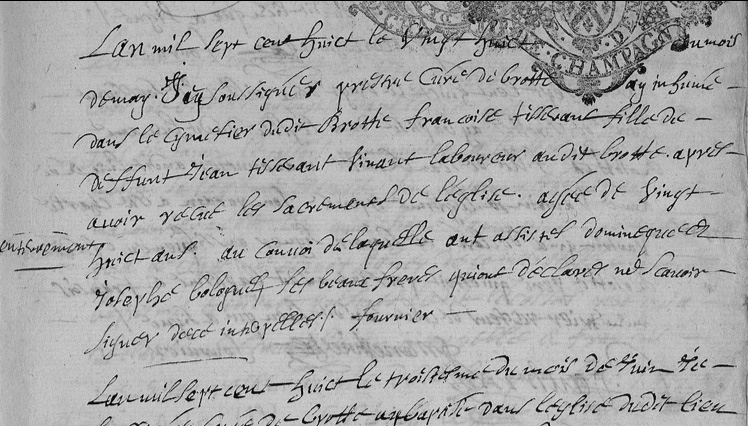 DE CHAMPAGN
DEN
Lan mil sept cent huict le vingt huict du mois
de may. Je soussigner prestre Curé de brotte ay inhumé
dans le cymetier dudit Brotte francoise tisserant fille de
deffunt Jean tisserant vivant laboureur audit brotte. apres
avoir receue les sacrements de l'église. agée de vingt
entèrrement
huict ans. au convoi de laquelle ont assistes dominique et
Josephe bologne ses beaux freres qui ont déclarés ne scavoir
signer de ce interpelles. fournier
Lan mil sept cent huict le troisiesme du mois de Juin Je
Curé de brotte ay baptisé dans léglise dudit lieu